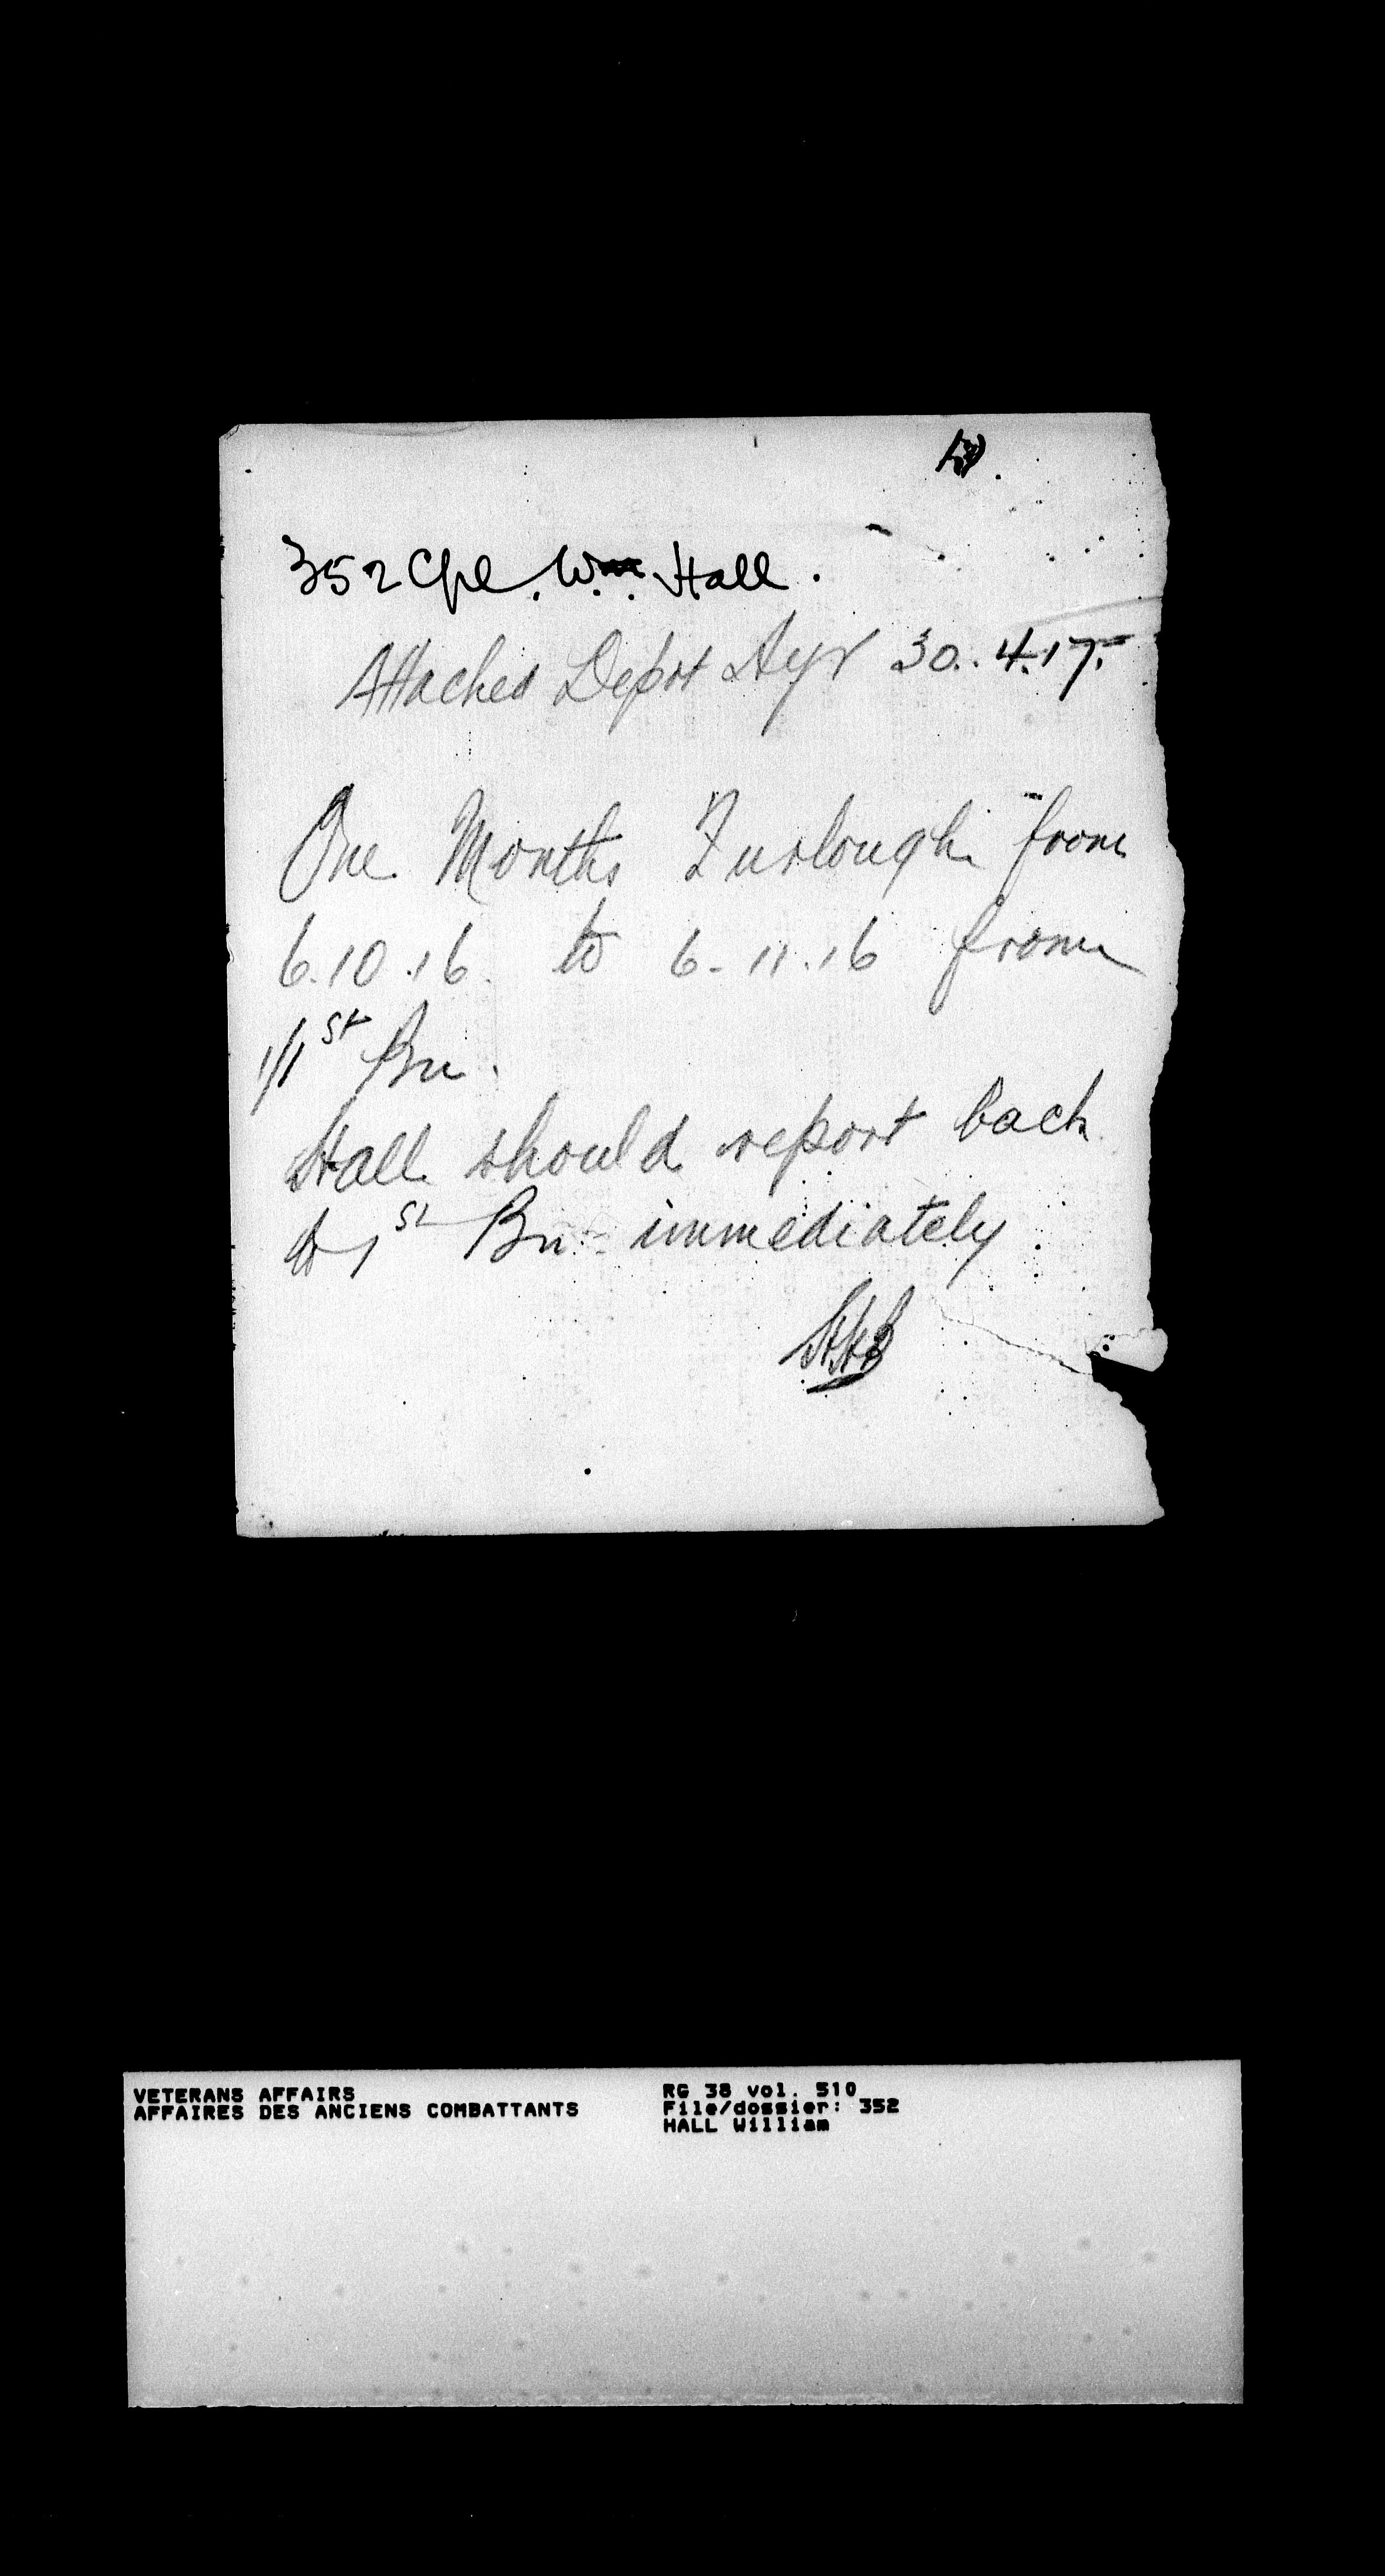 352 Cpl. Wm. Hall.
Attached Depot Ayr 30.4.17.
One Months Furlough from
6.10.16. to 6.11.16 from
1/1st Bn.
Hall should report back
to 1st Bn immediately.
VETERANS AFFAIRS
AFFAIRES DES ANCIENS COMBATTANTS
RG 38 vol. 510
File/dossier: 352
HALL William